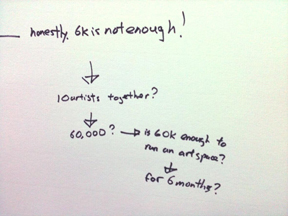 honestly, 6k is not enough!
10 artists together?
60,000? → is 60k enough to
run an art space?
for 6 months?